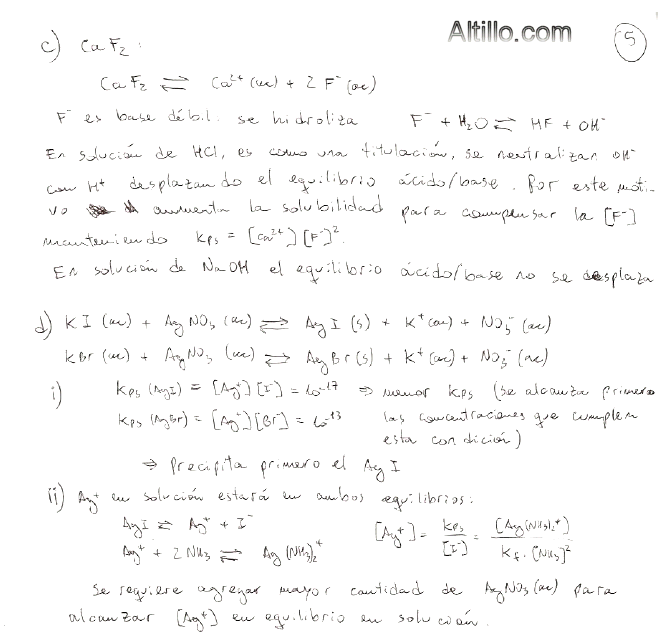 Altillo.com
5
c) CaF₂ :
CaF₂ ⇌ Ca²⁺(ac) + 2 F⁻(ac)
F⁻ es base débil. se hidroliza F⁻ + H₂O ⇌ HF + OH⁻
En solución de HCl, es como una titulación, se neutralizan OH⁻
con H⁺ desplazando el equilibrio ácido/base. Por este moti-
vo aumenta la solubilidad para compensar la [F⁻]
manteniendo Kps = [Ca²⁺][F⁻]².
En solución de NaOH el equilibrio ácido/base no se desplaza
d) KI (ac) + AgNO₃ (ac) ⇌ AgI (s) + K⁺(ac) + NO₃⁻(ac)
KBr (ac) + AgNO₃ (ac) ⇌ AgBr(s) + K⁺(ac) + NO₃⁻(ac)
i) Kps (AgI) = [Ag⁺][I⁻] = 10⁻¹⁷ ⇒ menor Kps (se alcanza primero
Kps (AgBr) = [Ag⁺][Br⁻] = 10⁻¹³ las concentraciones que cumplen
esta condición)
⇒ Precipita primero el AgI
ii) Ag⁺ en solución estará en ambos equilibrios:
AgI ⇌ Ag⁺ + I⁻ [Ag⁺] = Kps/[I⁻] = [Ag(NH₃)₂⁺]/Kf.[NH₃]²
Ag⁺ + 2 NH₃ ⇌ Ag(NH₃)₂⁺
Se requiere agregar mayor cantidad de AgNO₃(ac) para
alcanzar [Ag⁺] en equilibrio en solución.